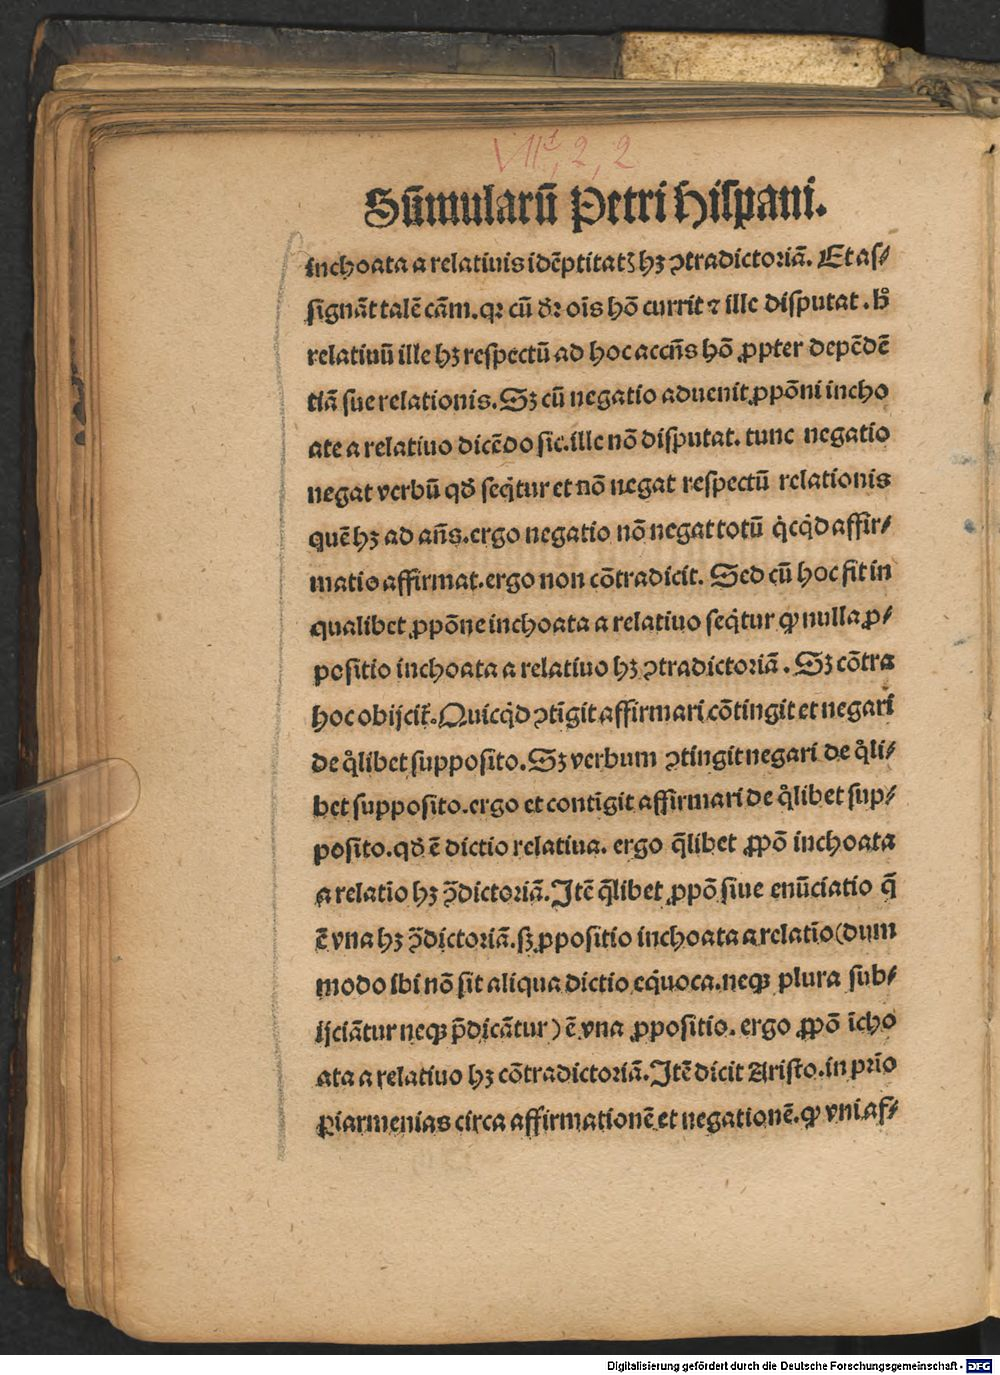 VIIᵈ, 2, 2
Sūmularū Petri hiſpani.
inchoata a relatiuis idēptitatꝫ hꝫ ꝯtradictoriā. Et aſ⸗
ſignāt talē cām. qꝛ cū dꝛ oīs hō currit ⁊ ille diſputat. h̊
relatiuū ille hꝫ reſpectū ad hoc accn̄s hō ꝓpter depēdē
tiā ſue relationis. Sꝫ cū negatio aduenit ꝓpōni incho
ate a relatiuo dicēdo ſic. ille nō diſputat. tunc negatio
negat verbū qd̄ ſeqͥtur et nō negat reſpectū relationis
quē hꝫ ad an̄s. ergo negatio nō negat totū qͥcqͥd affir⸗
matio affirmat. ergo non cōtradicit. Sed cū hoc ſit in
qualibet ꝓpōne inchoata a relatiuo ſeqͥtur ꝙ nulla ꝓ⸗
poſitio inchoata a relatiuo hꝫ ꝯtradictoriā. Sꝫ cōtra
hoc obijcit̄. Quicqͥd ꝯtīgit affirmari cōtingit et negari
de qͦlibet ſuppoſito. Sꝫ verbum ꝯtingit negari de qͦli⸗
bet ſuppoſito. ergo et contīgit affirmari de qͦlibet ſup⸗
poſito. qd̄ ē dictio relatiua. ergo q̄libet ꝓpō inchoata
a relatīo hꝫ ꝯ̄dictoriā. Itē q̄libet ꝓpō ſiue enūciatio q̄
ē vna hꝫ ꝯ̄dictoriā. ſꝫ ꝓpoſitio inchoata a relatīo (dum
modo ibi nō ſit aliqua dictio eqͥuoca. neqꝫ plura ſub⸗
ijciātur neqꝫ p̄dicātur) ē vna ꝓpoſitio. ergo ꝓpō īcho
ata a relatiuo hꝫ cōtradictoriā. Itē dicit Ariſto. in prīo
ꝑiarmenias circa affirmationē et negationē. ꝙ vni af⸗
Digitalisierung gefördert durch die Deutsche Forschungsgemeinschaft - DFG